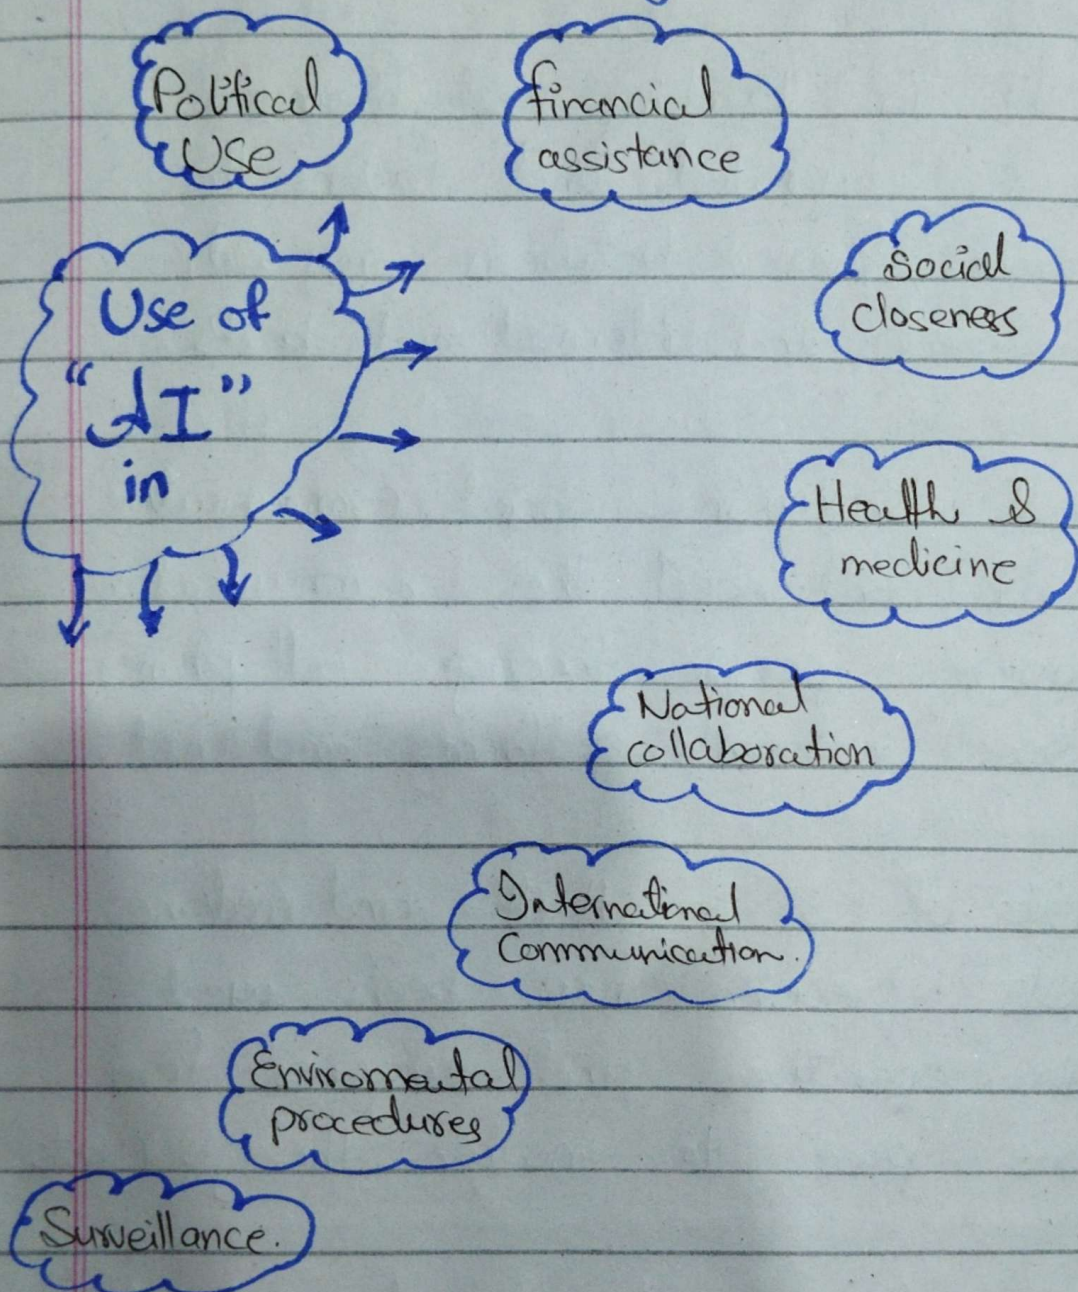 Political
Use
financial
assistance
Use of
"AI"
in
Social
closeness
Health &
medicine
National
collaboration
International
Communication.
Enviromental
procedures
Surveillance.